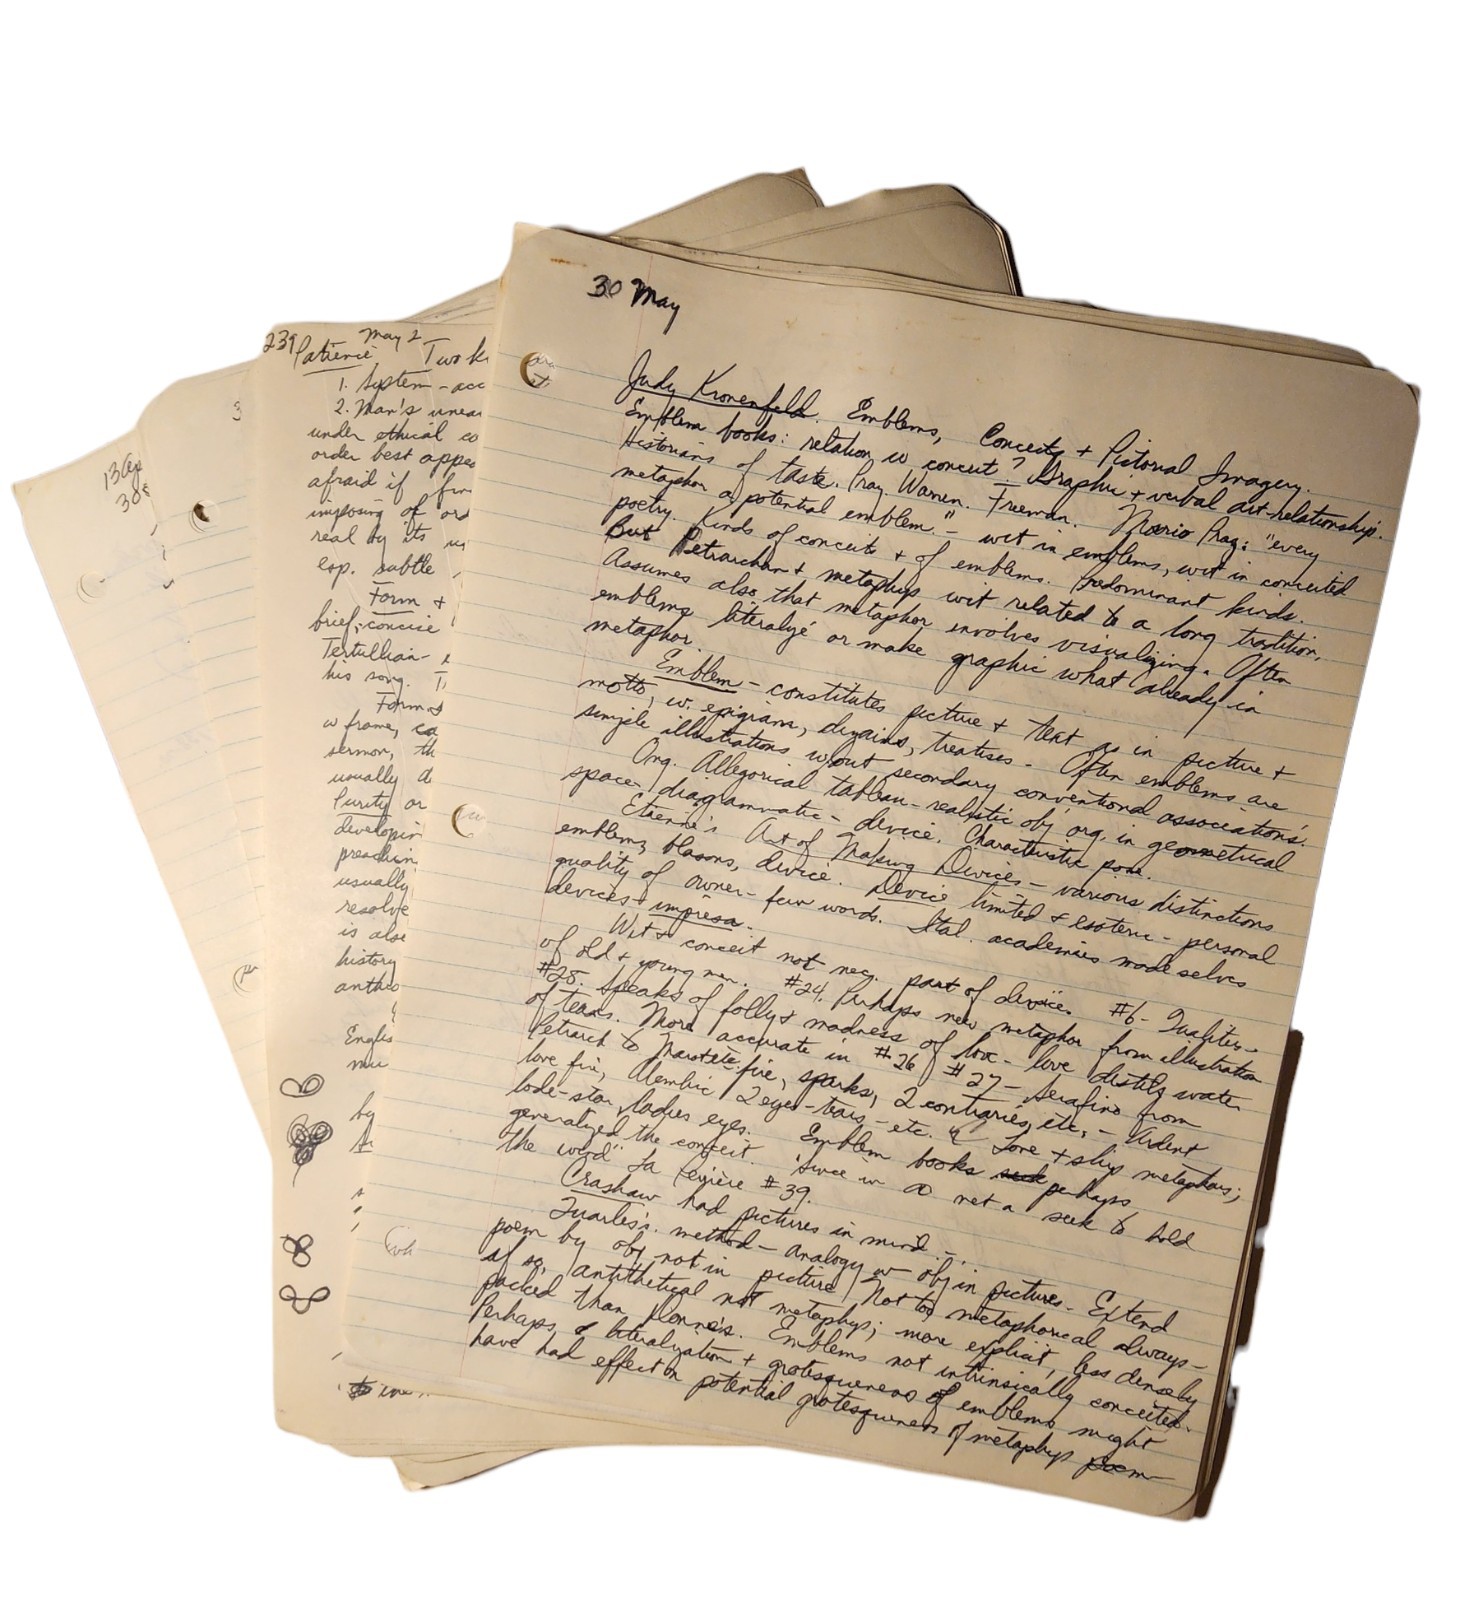 30 May
Judy Kronenfeld. Emblems, Conceits + Pictorial Imagery.
Emblem books: relation w conceit? Graphic + verbal art-relationship.
Historians of taste. Praz. Warren. Freeman. Mario Praz: "every
metaphor a potential emblem." - wit in emblems, wit in conceited
poetry. Kinds of conceit + of emblems. Predominant kinds.
But Petrarchan + metaphys wit related to a long tradition.
Assumes also that metaphor involves visualizing. Often
emblems literalize or make graphic what already in
metaphor.
Emblem - constitutes picture + text as in picture +
motto, w. epigram, dizains, treatises - Often emblems are
simple illustrations w/out secondary conventional associations.
Org. Allegorical tableau - realistic obj org. in geometrical
space, diagrammatic - device. Characteristic pose.
Etienne's Art of Making Devices - various distinctions
emblems, blasons, device. Device limited + esoteric - personal
quality of owner - few words. Ital. academies made selves
devices + impresa.
Wit + conceit not nec. part of device. #6 - Qualities -
of old + young men. #24. Perhaps new metaphor from illustration
#25. Speaks of folly + madness of love - love distils water
of tears. More accurate in #26 #27 - Serafino from
Petrarch to fire, sparks, 2 contraries, etc. - Ardent
love fire, Alembic 2 eyes - tears - etc. Love + ship metaphors;
lode-star ladies eyes. Emblem books perhaps
generalized the conceit. 'Since in a net a seek to hold
the wind" La Perrière #39.
Crashaw had pictures in mind. -
Quarles's method - analogy w obj in pictures - Extend
poem by obj not in picture. Not too metaphorical always -
if so, antithetical not metaphys; more explicit, less densely
packed than Donne's. Emblems not intrinsically conceited.
Perhaps literalization + grotesqueness of emblems might
have had effect on potential grotesqueness of metaphys poem
239 May 2
Patience Two k
1. System - acc
2. Man's
under ethical co
order best appe
afraid if
imposing of ord
real by its
esp. subtle
Form +
brief, concise
Tertullian -
his song. T
Form
w frame, ca
sermon, th
usually d
Purity or
developin
preachin
usually
resolve
is also
history
antho
Englis
mu
by